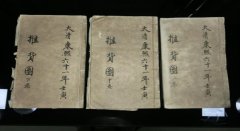 大清康熙六十一年壬寅
推背圖
大清康熙六十一年壬寅
推背圖
大清康熙六十一年壬寅
推背圖